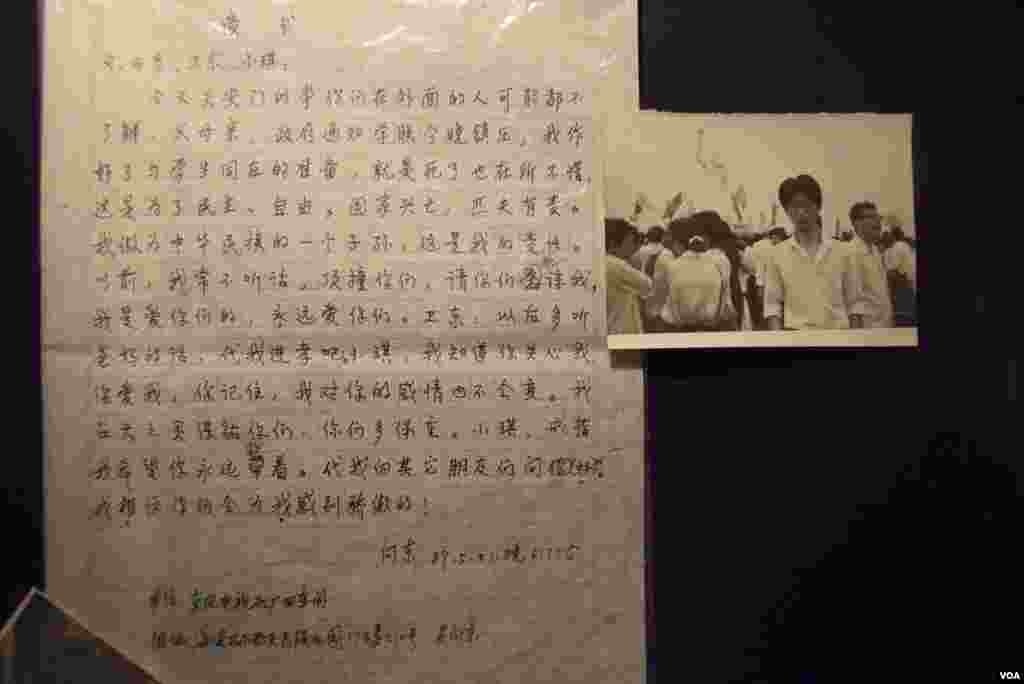 遗书
父、母亲、卫东、小琪：
今天天安门的事你们在外面的人可能都不
了解，父母亲，政府通知学联今晚镇压，我作
好了与学生同在的准备，就是死了也在所不惜，
这是为了民主、自由。国家兴亡，匹夫有责。
我做为中华民族的一个子孙，这是我的责任。
以前，我常不听话，顶撞你们，请你们原谅我，
我是爱你们的，永远爱你们。卫东，以后多听
爸妈的话，代我进孝吧。小琪，我知道你关心我
你爱我，你记住，我对你的感情也不会变。我
在天之灵保祐你们，你们多保重。小琪，戒指
我希望你永远带着。代我向其它朋友们问好
我相信你们会为我感到骄傲的！
何东 89.5.
单位
地址
VOA